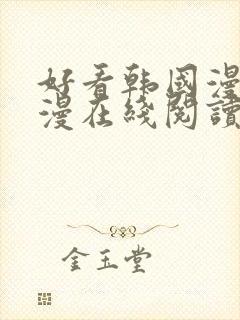 好看韩国漫
漫在綫閱讀
金玉堂